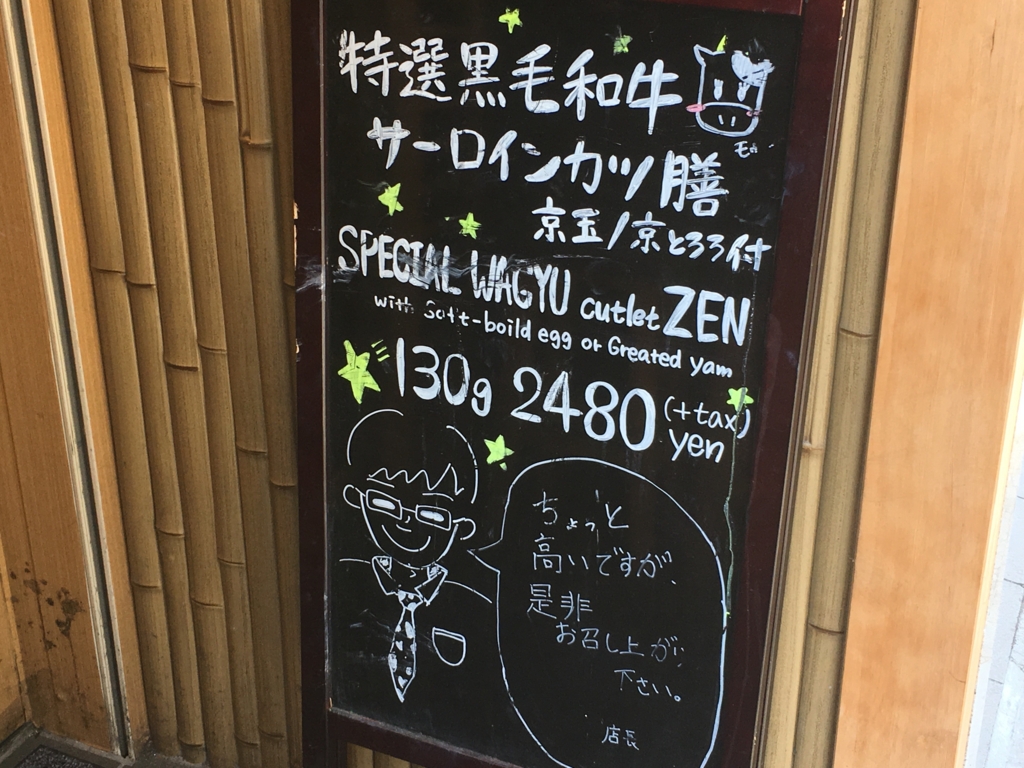 特選黒毛和牛
モォ..
サーロインカツ膳
京玉/京とろろ付
SPECIAL WAGYU cutlet ZEN
with Soft-boild egg or Greated yam
130g 2480 (+tax) yen
ちょっと
高いですが、
是非
お召し上がり
下さい。
店長